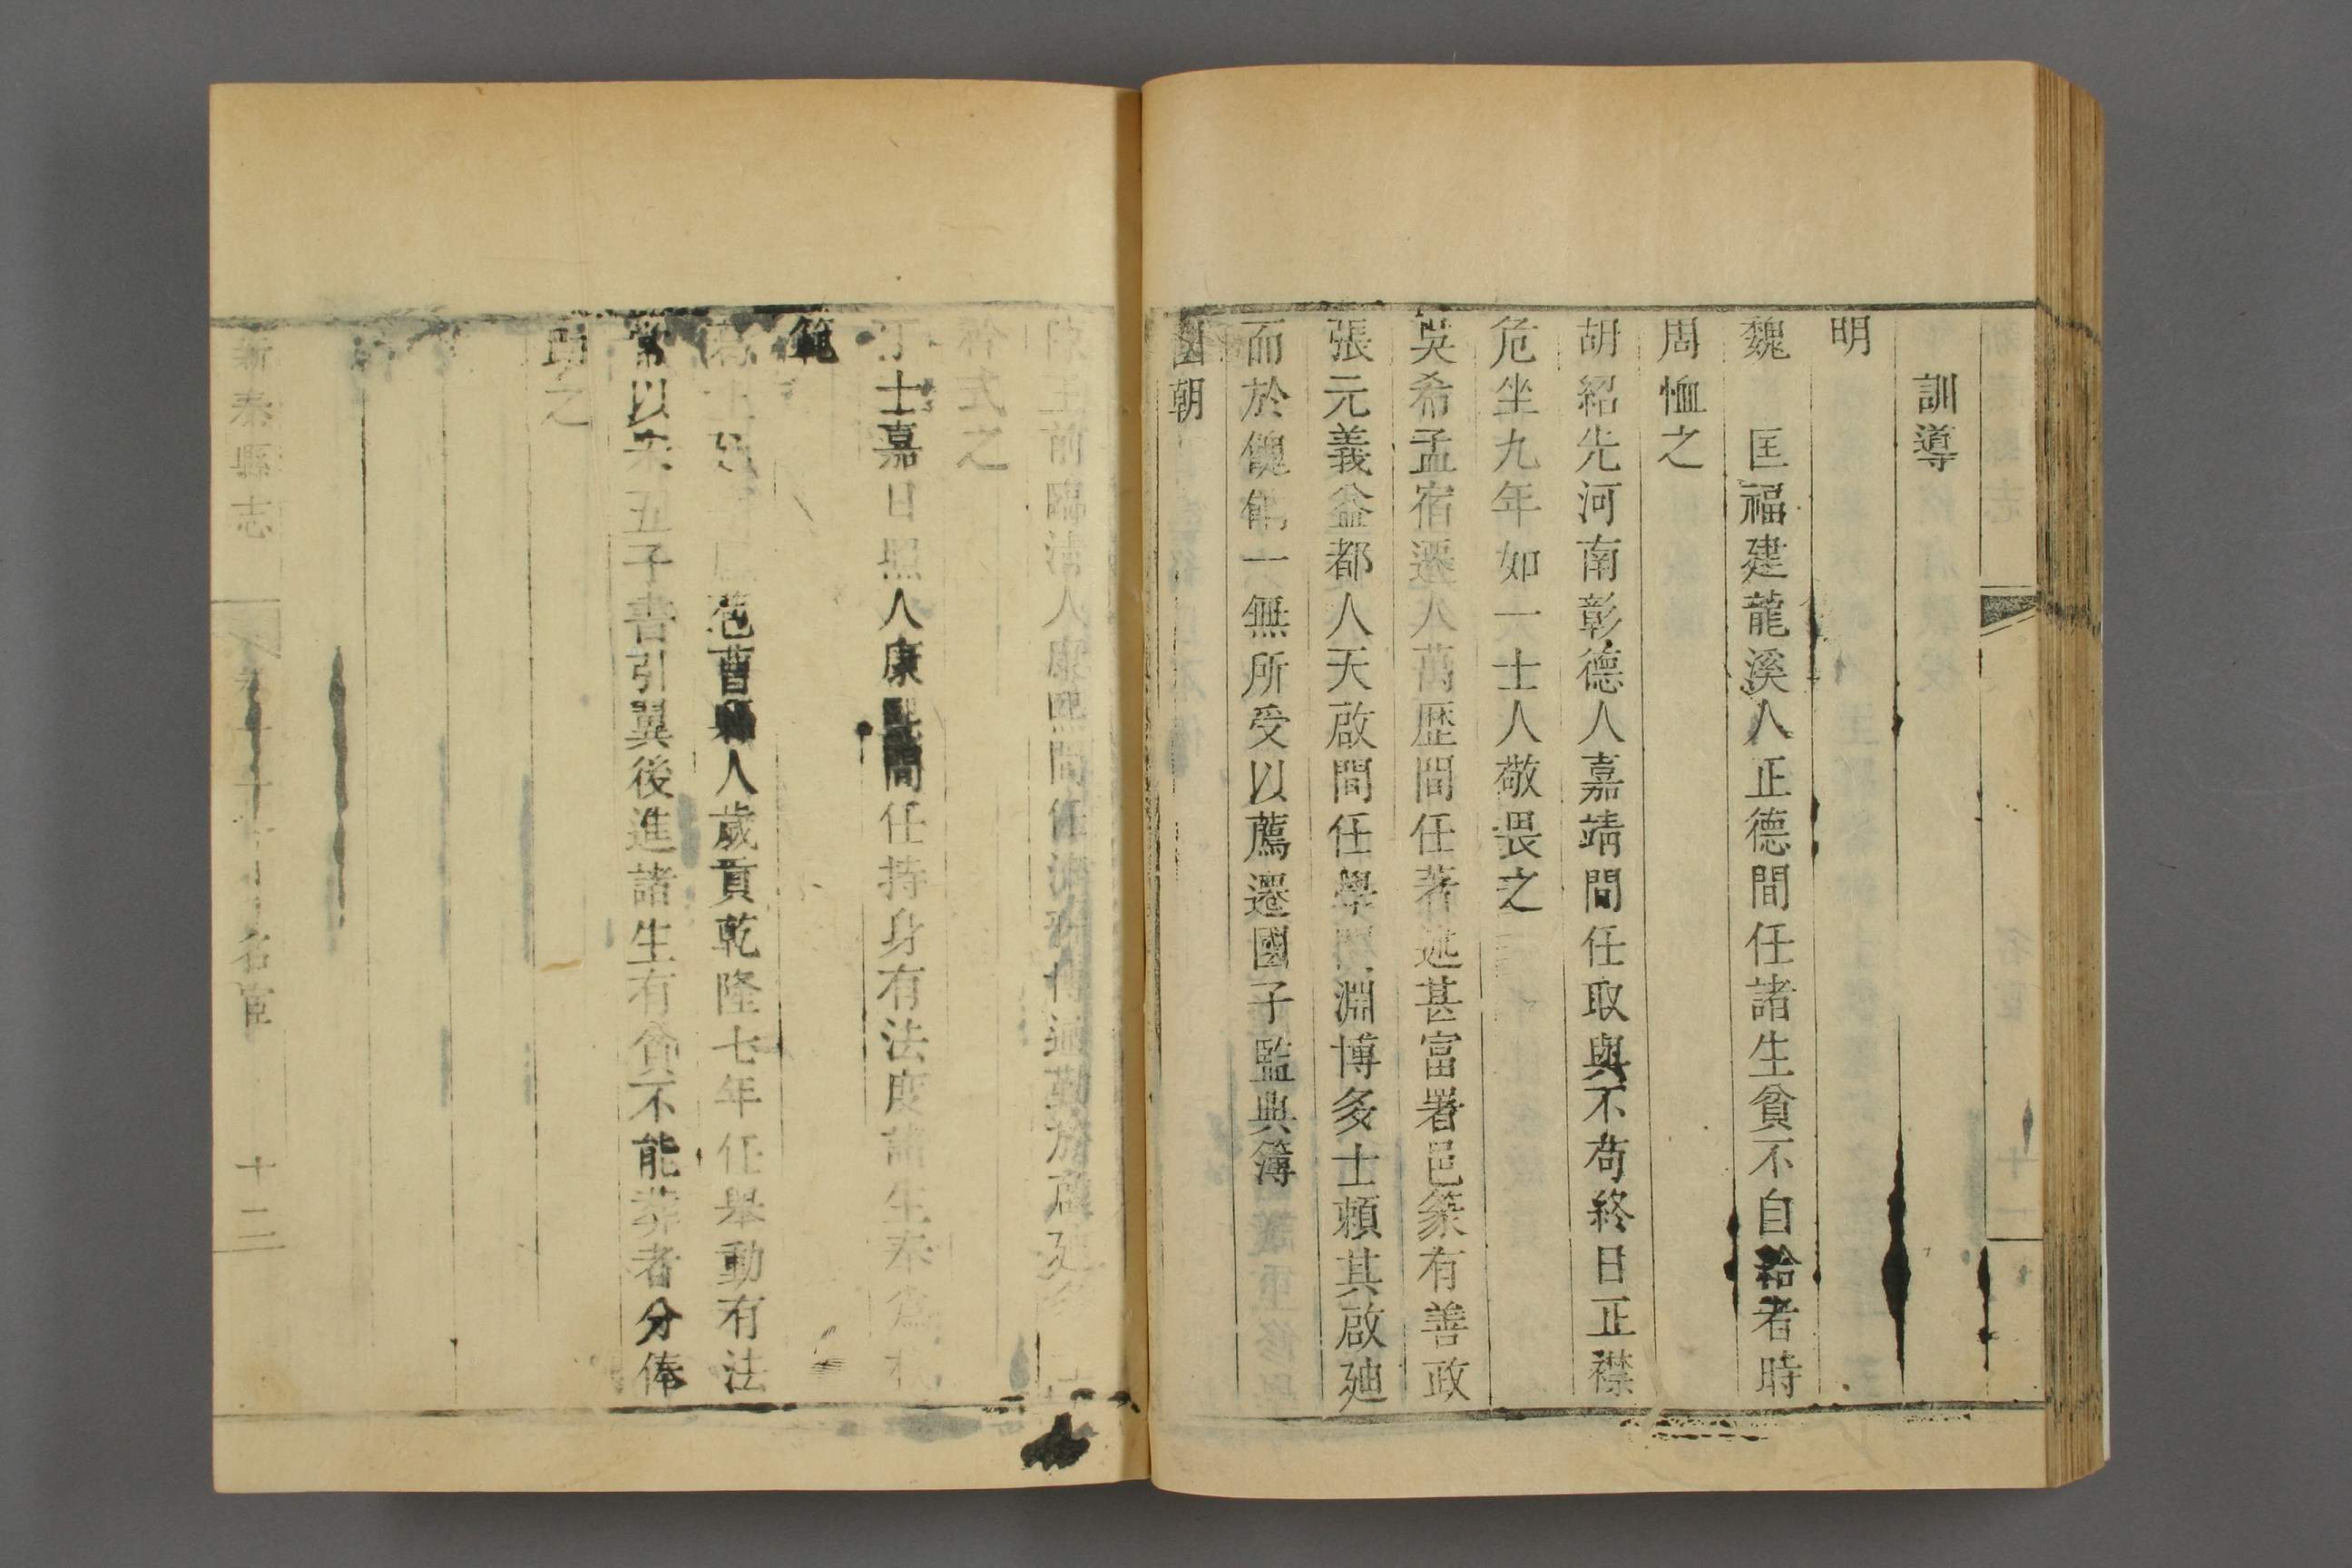 訓導
明
魏 匡福建龍溪人正德間任諸生貧不自給者時
周恤之
胡紹先河南彰德人嘉靖間任取與不苟終日正襟
危坐九年如一士人敬畏之
吳希孟宿遷人萬歷間任著述甚富署邑篆有善政
張元義益都人天啟間任學問淵博多士賴其啟廸
而於餽餉一無所受以薦遷國子監典簿
國朝
前臨清人康熙間任淹博通勤於啟廸
令式之
丁士嘉日照人康熙間任持身有法度諸生奉為楷
範
苞曹縣人歲貢乾隆七年任舉動有法
常以朱五子書引翼後進諸生有貧不能葬者分俸
助之
新泰縣志 名宦 十二